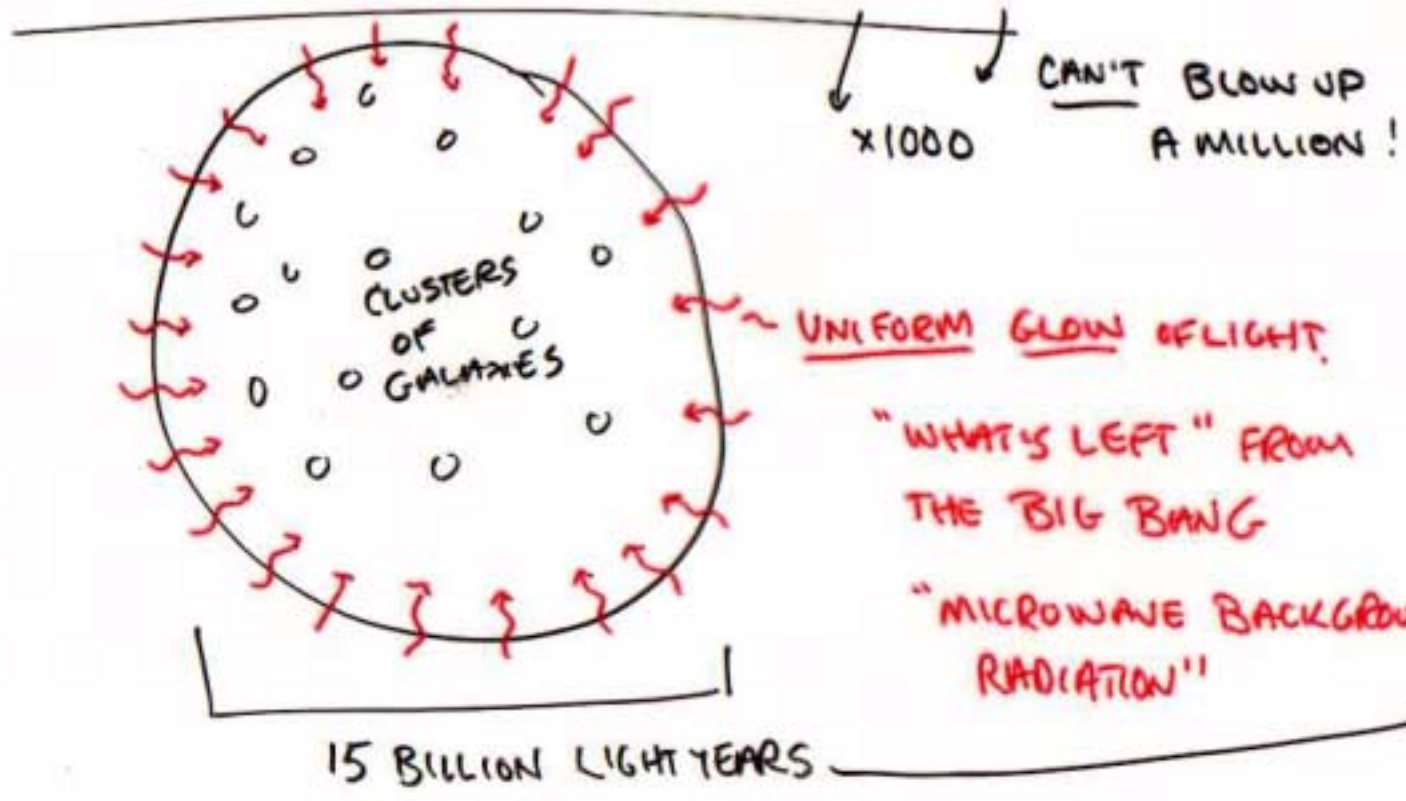 CAN'T BLOW UP
x1000
A MILLION!
CLUSTERS
OF
GALAXIES
~ UNIFORM GLOW OF LIGHT.
"WHAT'S LEFT" FROM
THE BIG BANG
"MICROWAVE BACKGROU
RADIATION"
15 BILLION LIGHTYEARS